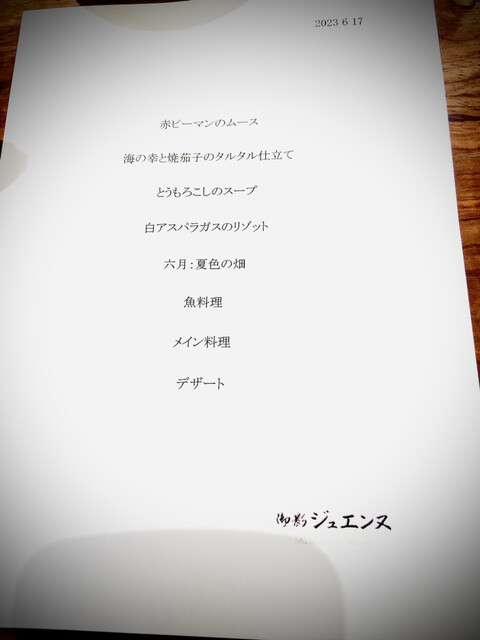 2023 6 17
赤ピーマンのムース
海の幸と焼茄子のタルタル仕立て
とうもろこしのスープ
白アスパラガスのリゾット
六月：夏色の畑
魚料理
メイン料理
デザート
御影ジュエンヌ